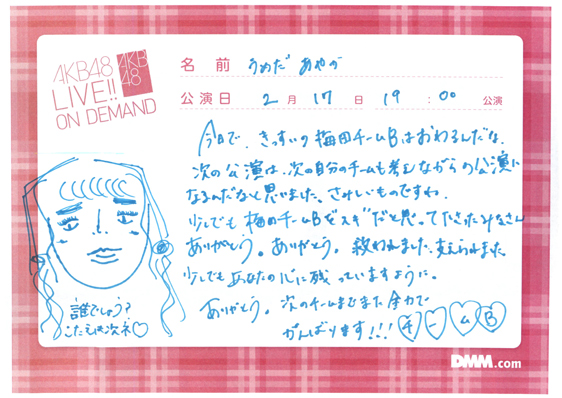 AKB48
LIVE!!
ON DEMAND
AKB
48
名 前 うめだ あやか
公演日 2 月 17 日 19 : 00 公演
今日で、きっすいの梅田チームBはおわるんだな。
次の公演は、次の自分のチームも考えながらの公演に
なるんだなと思いました、さみしいものですね。
少しでも梅田チームBをスキ"だと思ってくださったみなさん
ありがとう。ありがとう。救われました、支えられました
少しでもあなたの心に残っていますように。
ありがとう。次のチームまでまた全力で
がんばります!!! チームB
誰でしょう?
こたえは次ネ♡
DMM.com